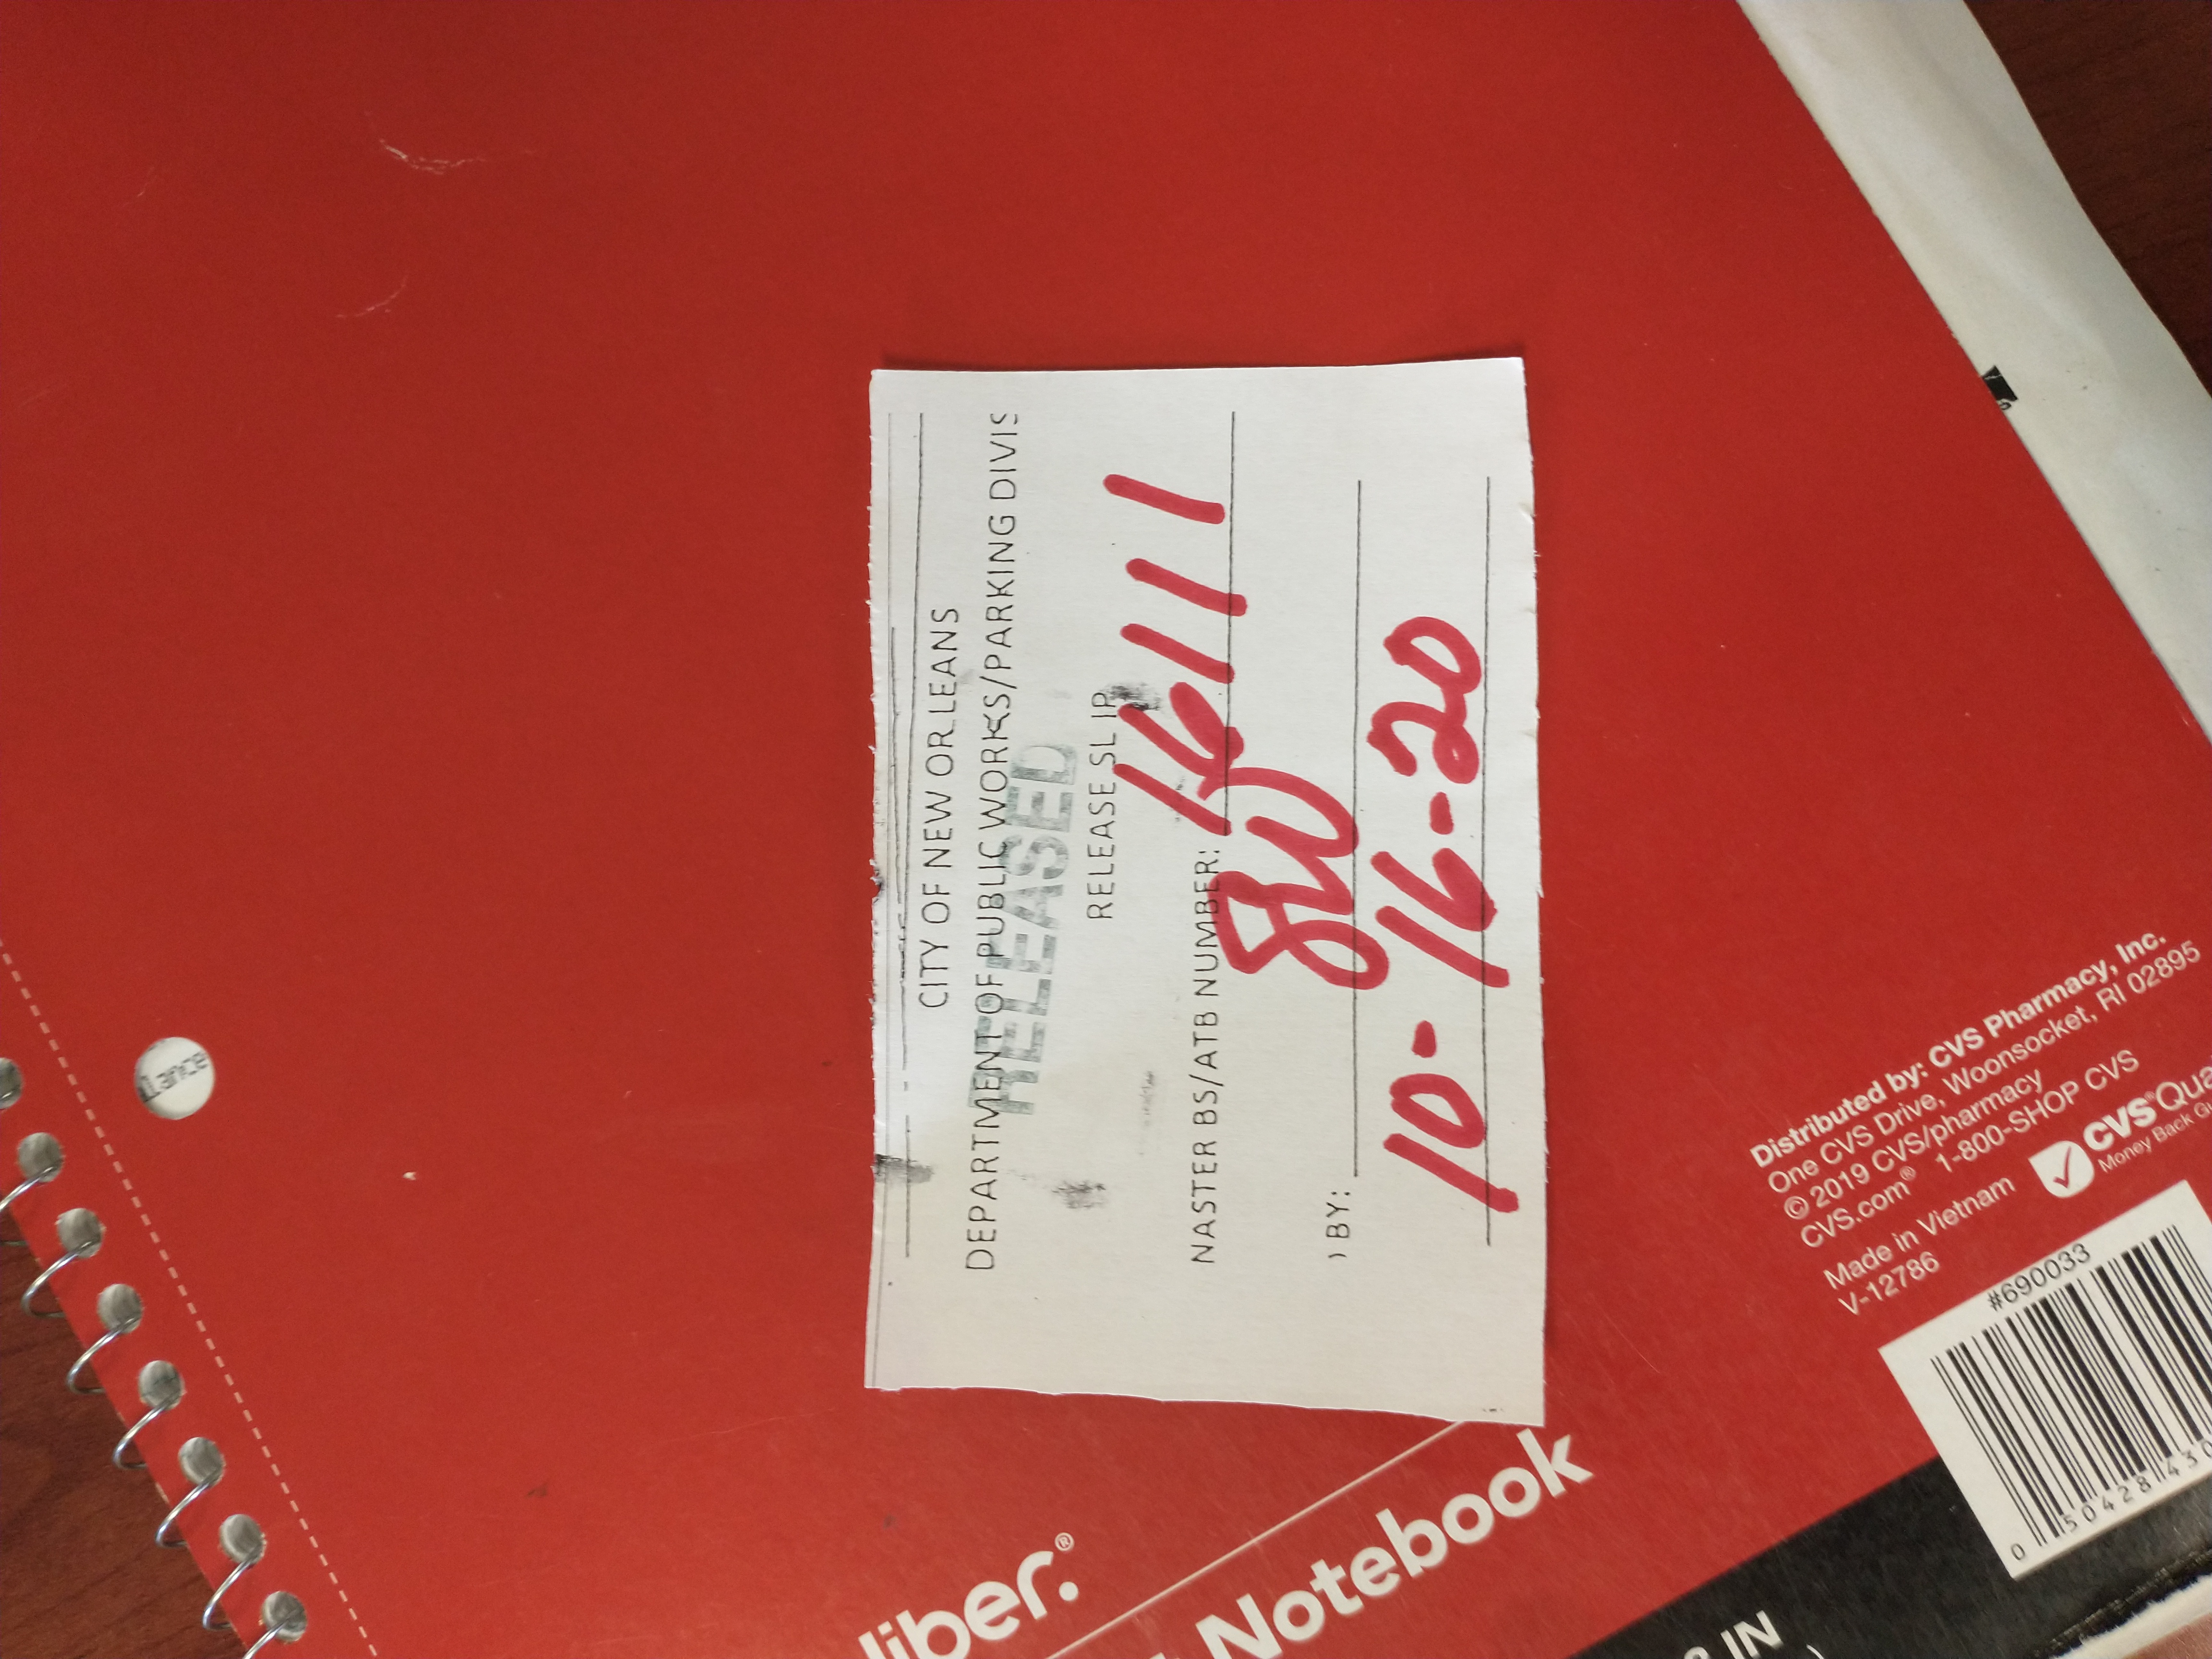 CITY OF NEW ORLEANS
DEPARTMENT OF PUBLIC WORKS/PARKING DIVIS
RELEASED
RELEASE SLIP
NASTER BS/ATB NUMBER: 16111
) BY: SW
10-16-20
liber.®
Notebook
IN
)
Distributed by: CVS Pharmacy, Inc.
One CVS Drive, Woonsocket, RI 02895
© 2019 CVS/pharmacy
CVS.com® 1-800-SHOP CVS
Made in Vietnam
V-12786
CVS®Qua
Money Back Gu
#690033
0 50428 430